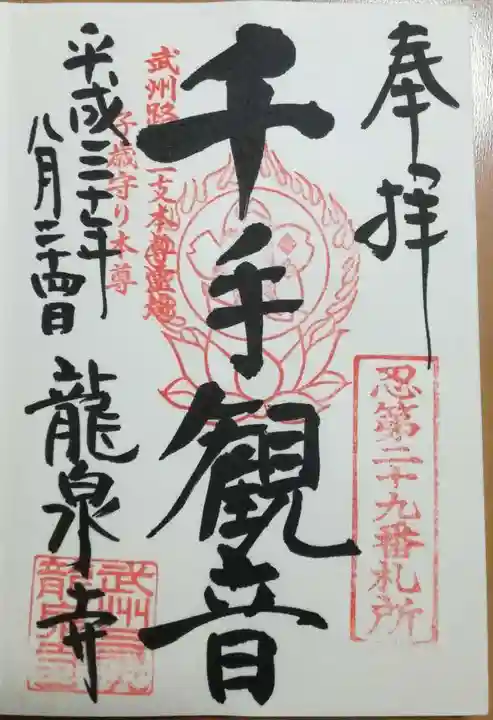 奉拝
忍第二十九番札所
千手観音
武州路十二支本尊霊地
子歳守り本尊
平成三十年
八月二十四日
龍泉寺